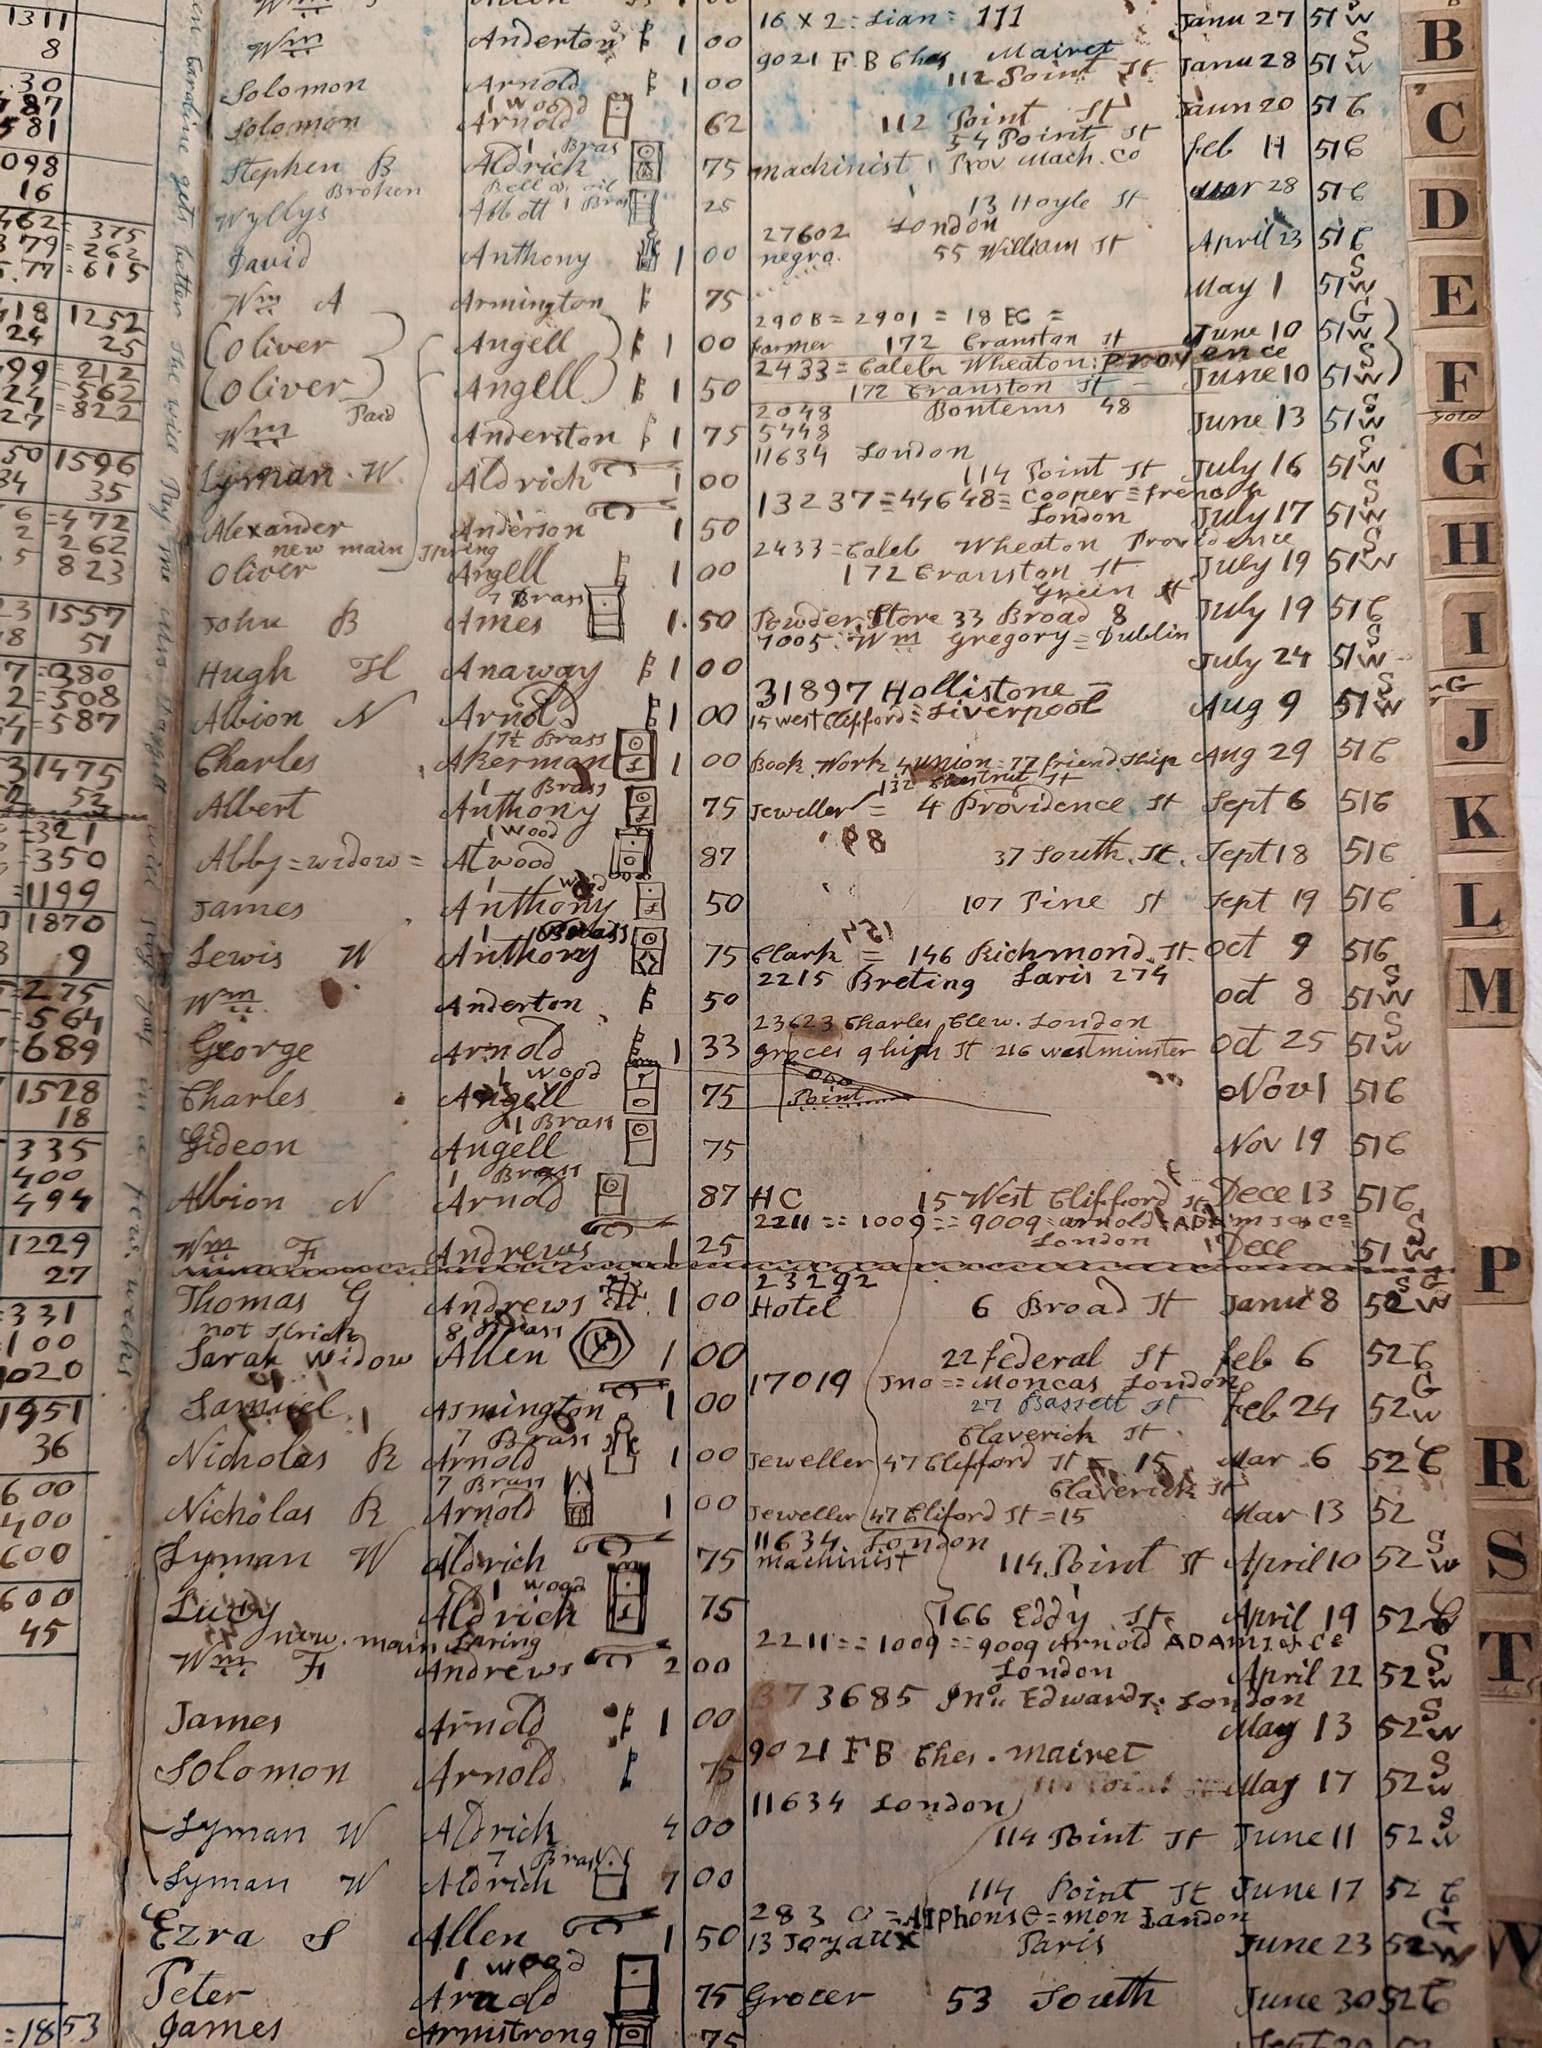 Wm Anderton 1 00 16 x 2 = Lian = 111 Janu 27 51 S W
Solomon Arnold 1 00 9021 F B Ches Mairet 112 Point St Janu 28 51 S W
Solomon Arnold 1 Wood 62 112 Point St Jaun 20 51 C
54 Point St
Stephen B Aldrick 1 Bras 75 machinist Prov Mach. Co Feb 11 51 C
Broken Bell
Wyllys Abbott 1 Bras 25 13 Hoyle St Mar 28 51 C
27602 London
David Anthony 1 00 negro. 55 William St April 23 51 C
Wm A Armington 75 May 1 51 S W
290B = 2901 = 18 EC =
(Oliver Angell) 1 00 Farmer 172 Cranston St June 10 51 G W
2433 = Caleb Wheaton: Provence
(Oliver) Angell) 1 50 172 Cranston St June 10 51 S W
Paid 2048 Bontems 48
Wm Anderston 1 75 5448 June 13 51 S W
11634 London
Lyman W Aldrich 1 00 114 Point St July 16 51 S W
13237 = 44648 = Cooper = french
Alexander Anderson 1 50 London July 17 51 S W
new main Spring 2433 = Caleb Wheaton Providence
Oliver Angell 1 00 172 Cranston St July 19 51 S W
7 Brass Green St
John B Ames 1.50 Powder Store 33 Broad 8 July 19 51 C
7005 Wm Gregory = Dublin
Hugh H Anaway 1 00 July 24 51 S W
31897 Hollistone =
Albion N Arnold 1 00 15 west Clifford = Liverpool Aug 9 51 S W
Brass
Charles Akerman 1 00 Book Work 4 union = 77 friend.ship Aug 29 51 C
1 Brass 132 Chestnut St
Albert Anthony 75 Jeweller = 4 Providence St Sept 6 51 C
1 Wood
Abby = widow = Atwood 87 37 South. St. Sept 18 51 C
1 Wood
James Anthony 50 107 Pine St Sept 19 51 C
1 Brass
Lewis W Anthony 75 Clark = 146 Richmond. St. Oct 9 51 C
2215 Breting Laris 274
Wm Anderton 50 Oct 8 51 S W
23623 Charles Clew. London
George Arnold 1 33 groces 9 high St 216 westminster Oct 25 51 S W
1 Wood
Charles Angell 75 Point Nov 1 51 C
1 Brass
Gideon Angell 75 Nov 19 51 C
1 Brass
Albion N Arnold 87 HC 15 West Clifford St Dece 13 51 C
2211 == 1009 == 9009 = arnold = ADAMS & Co
Wm F Andrews 1 25 London Dece 51 S W
23292
Thomas G Andrews 1 00 Hotel 6 Broad St Janu 8 52 S G W
not Strick 8 Brass
Sarah widow Allen 1 00 22 federal St Feb 6 52 C
17019 Jno == Moncas London
Samuel Armington 1 00 27 Bassett St Feb 24 52 G W
7 Brass Claverick St.
Nicholas R Arnold 1 00 Jeweller 47 Clifford St = 15 Mar 6 52 C
7 Brass Claverick St
Nicholas R Arnold 1 00 Jeweller 47 Cliford St = 15 Mar 13 52
11634 London
Lyman W Aldrich 75 machinist 114 Point St April 10 52 S W
1 wood
Lucy Aldrich 75 166 Eddy St. April 19 52 C
new. main Spring 2211 == 1009 == 9009 Arnold ADAMS & Co
Wm F Andrews 2 00 London April 22 52 S W
373685 Jno. Edwards: London
James Arnold 1 00 May 13 52 S W
9021 F B Ches. Mairet
Solomon Arnold 75 May 17 52 S W
11634 London
Lyman W Aldrich 4 00 114 Point St June 11 52 S W
7 Bras
Lyman W Aldrich 7 00 114 Point St June 17 52 C
283 0 = Alphonse = mon London
Ezra S Allen 1 50 13 Joyaux Paris June 23 52 G W
1 wood
Peter Arnold 75 Grocer 53 South June 30 52 C
James Armstrong 75 Sept 20 52
1311
8
098
16
1252
25
50 1596
34 35
1557
51
1475
52
1199
1870
9
1528
18
335
400
494
1229
27
331
100
1020
1951
36
600
400
600
600
45
=1853
B
C
D
E
F
Gold
G
H
I
J
K
L
M
P
R
S
T
W